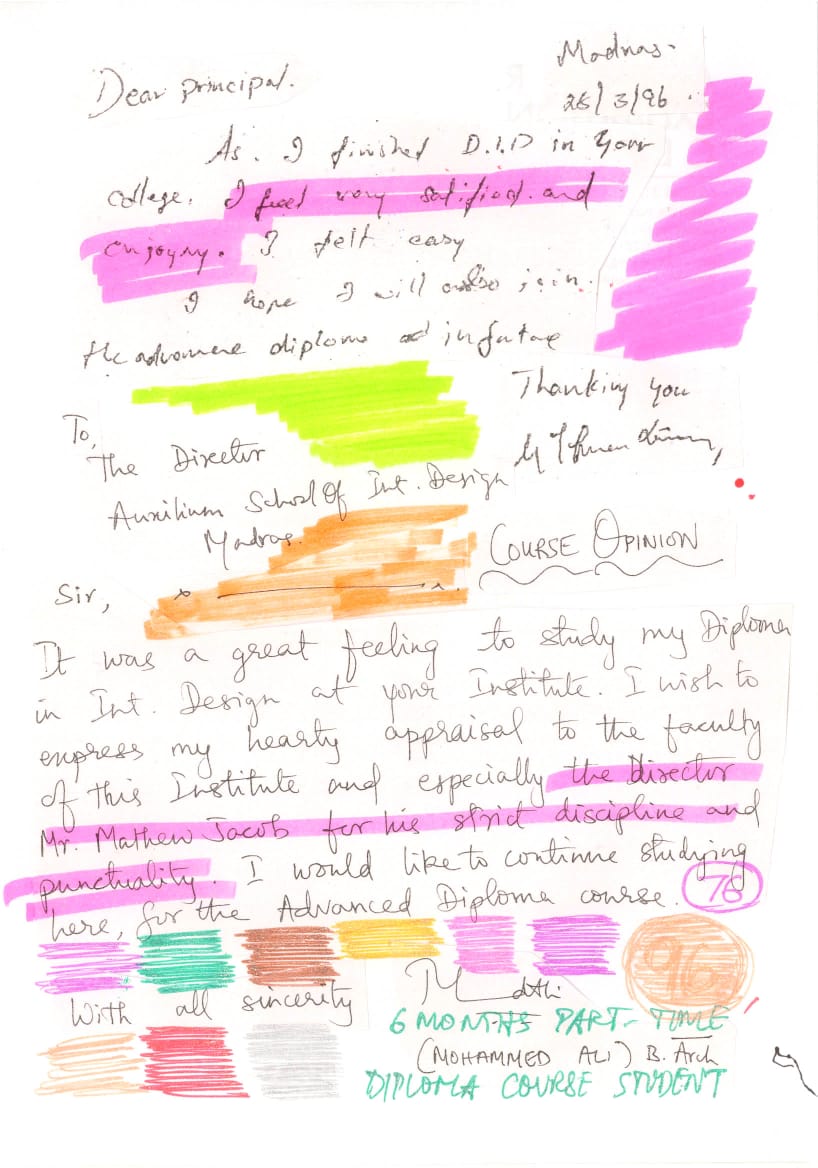 Madras.
28/3/96.
Dear principal.
As. I finished D.I.D in your
college. I feel very satified. and
enjoyny. I felt easy
I hope I will also join.
the advance diploma in future
Thanking you
To,
The Director
Auxilium School Of Int. Design
Madras.
COURSE OPINION
Sir,
It was a great feeling to study my Diploma
in Int. Design at your Institute. I wish to
express my hearty appraisal to the faculty
of this Institute and especially the Director
Mr. Mathew Jacob for his strict discipline and
punctuality. I would like to continue studying
here, for the Advanced Diploma course. 76
96
With all sincerity
6 MONTHS PART-TIME
(MOHAMMED ALI) B. Arch
DIPLOMA COURSE STUDENT